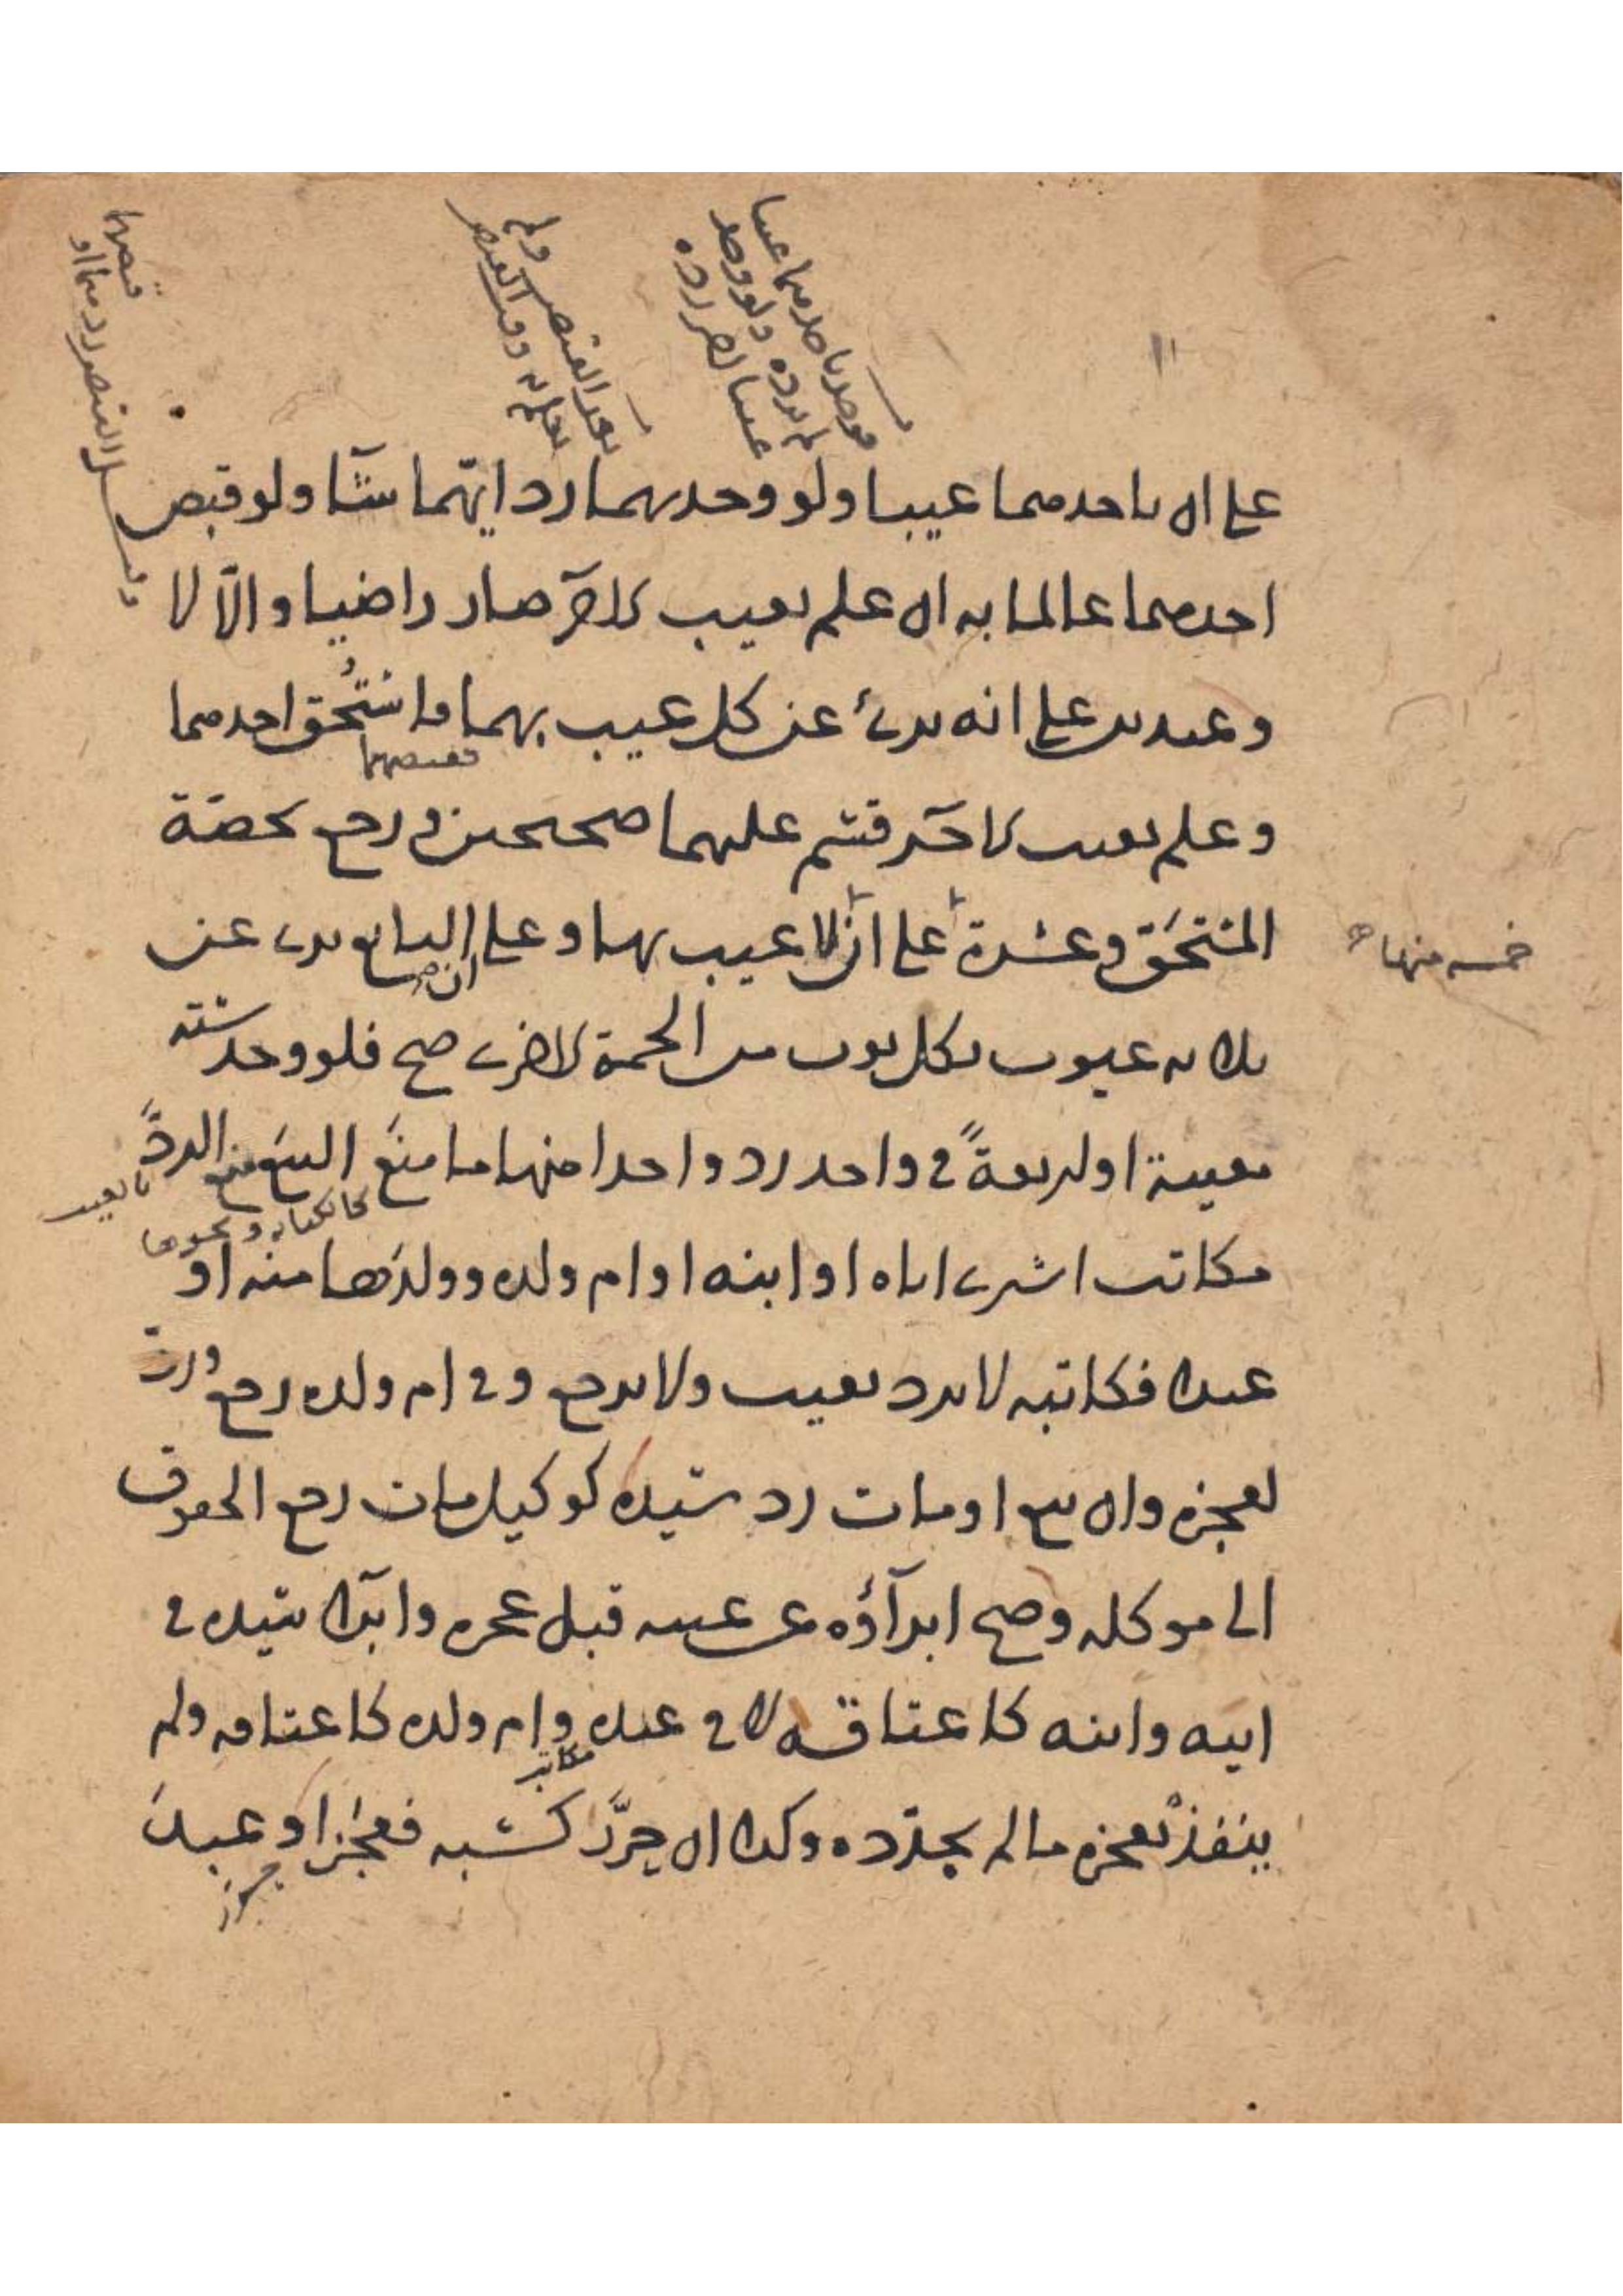 على ان باحدهما عيبا ولو وجدهما رد ايّهما شآء ولو قبض
احدهما عالما به ان علم بعيب الآخر صار راضيا والّا لا
وعبدين على انه برئ عن كل عيب بهما فاستُحق احدهما
فقبضهما
وعلم بعيب الاخر قسم عليهما صحيحين ورجع بحصة
المستحَق وعشرة على ان لا عيب بها وعلى ان البايع برى عن
خمسة منها
ثلاثة عيوب بكل ثوب من الخمسة الاخرى صح فلو وجد ستة
معيبة او اربعةً في واحد رد واحدا منها ما منعَ البيعَ منع الردَّ
بالعيب
كالكتابة ونحوها
مكاتب اشترى اباه او ابنه او ام ولده وولدَها منه او
عبدا فكاتبه لا يرد بعيب ولا يرجع وفي ام ولده رجع ورد
لعجزه وان بيع او مات رد سيده كوكيل مات رجع الحقوق
الى موكله وصح ابرآؤه عن عيبه قبل عجزه وابرا سيده في
ابيه وابنه كاعتاقه لا في عبده وام ولده كاعتاقه ولم
مكاتب
ينفذْ بعجزه ما لم يجدّده وكذا ان حرَّر كسبه فعجز او عبدَ